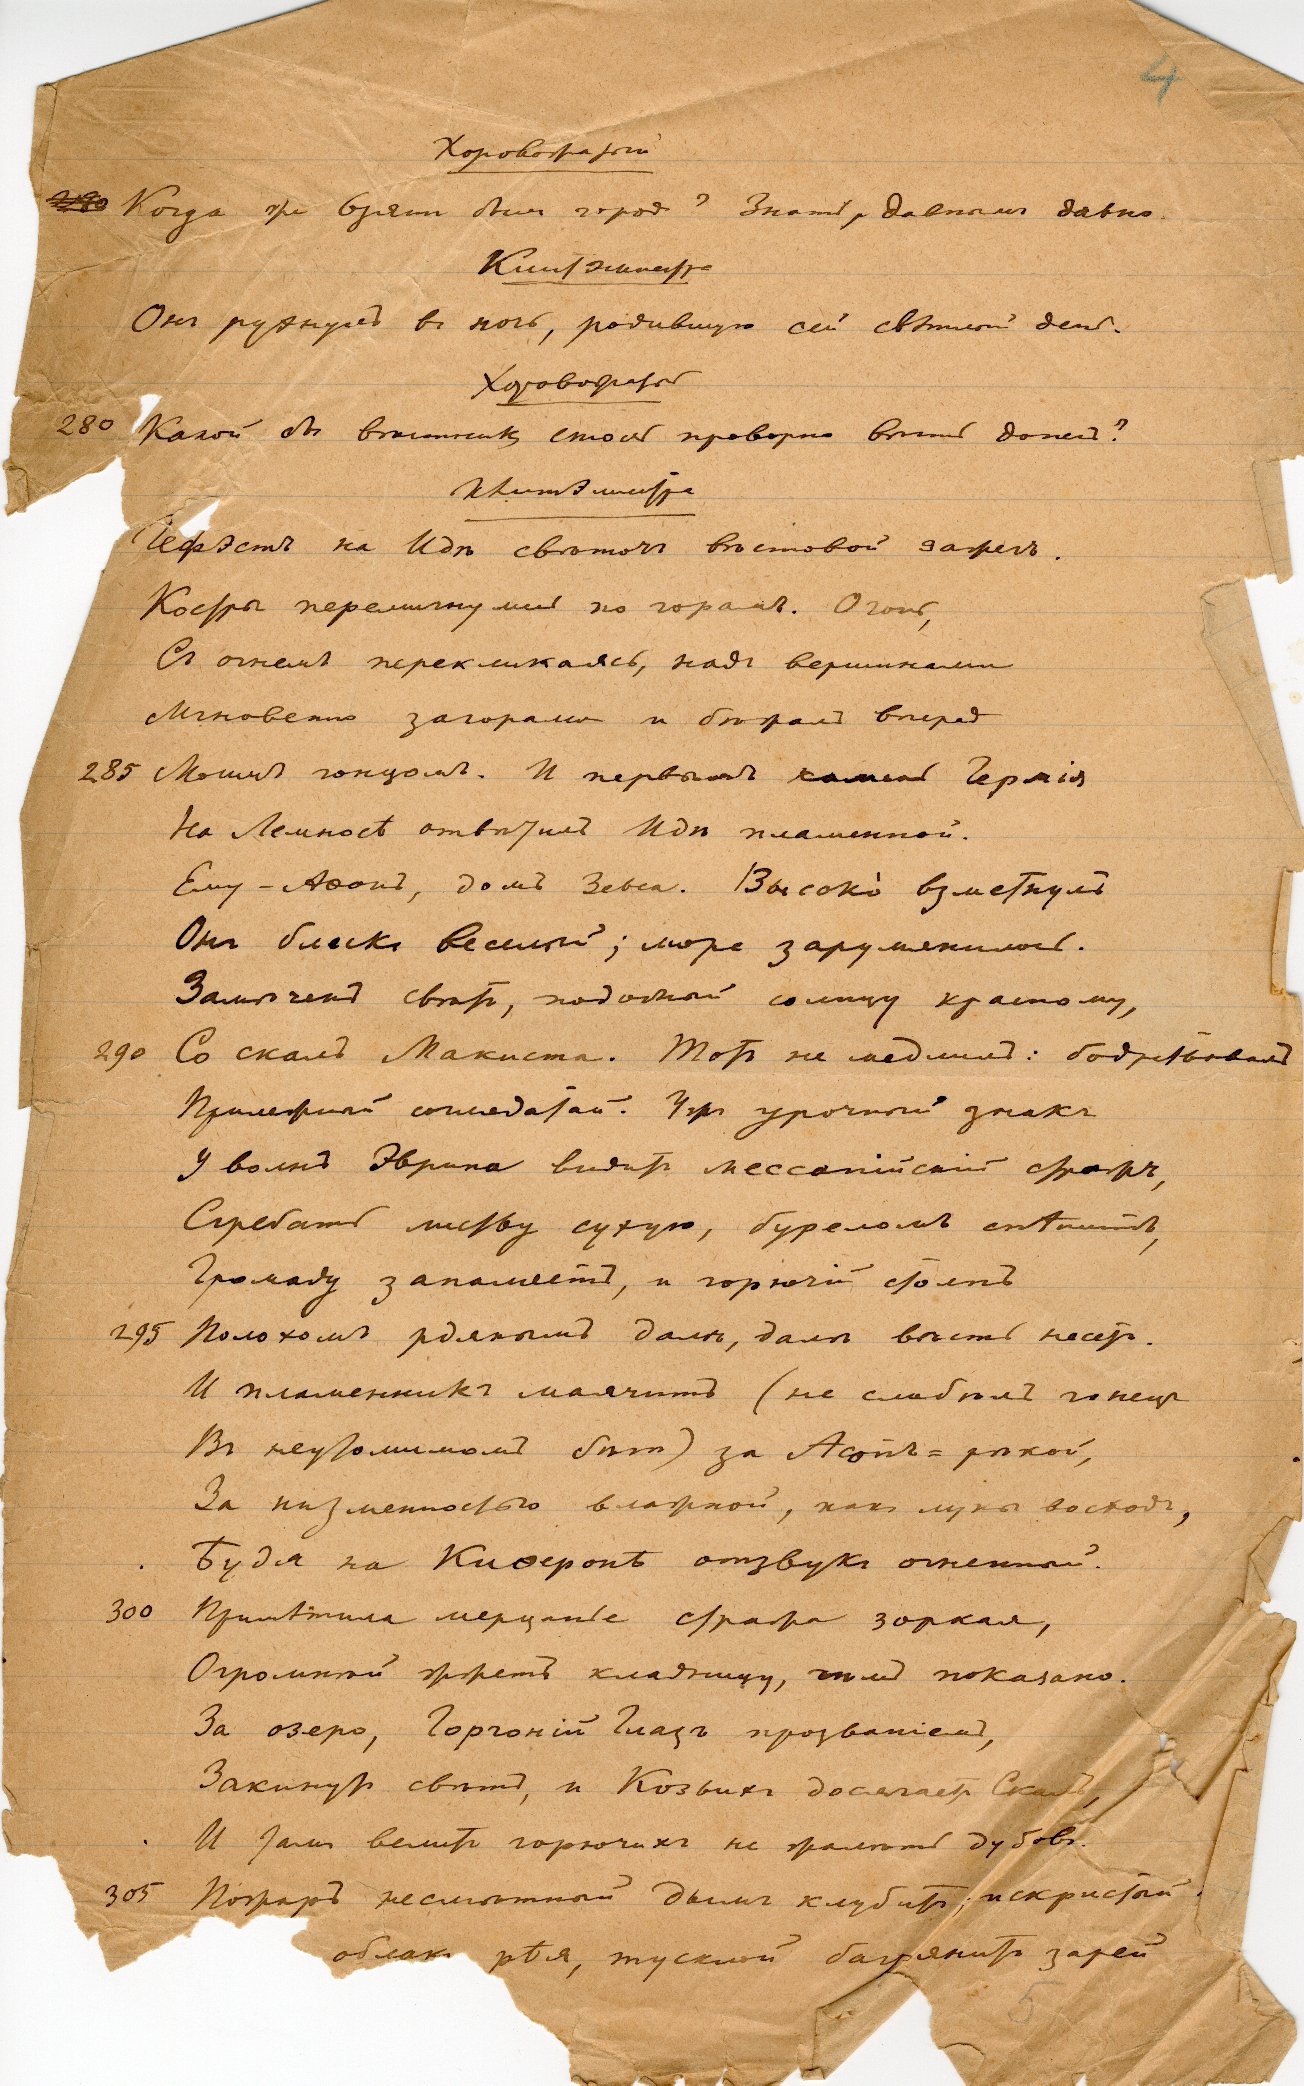 4
Хоровожатый
Когда же взятъ былъ городъ? Знать, давнымъ давно.
Клитэмнестра
Онъ рухнулъ въ ночь, родившую сей свѣтлый день.
Хоровожатый
280 Какой бъ вѣстникъ столь проворно вѣсть донесъ?
Клитэмнестра
Гефэстъ на Идѣ свѣточъ вѣстовой зажегъ.
Костры перемигнулись по горамъ. Огонь,
Съ огнемъ перекликаясь, надъ вершинами
Мгновенно загорался и бѣжалъ впередъ
285 Молвъ гонцомъ. И первымъ камень Герміи
На Лемносѣ отвѣтилъ Идѣ пламенной.
Ему – Аѳонъ, домъ Зевса. Высоко̀ взметнулъ
Онъ блескъ веселый; море зарумянилось.
Замѣченъ свѣтъ, подобный солнцу красному,
290 Со скалъ Макиста. Тотъ не медлилъ: бодрствовалъ
Прилежный соглядатай. Ужъ урочный знакъ
У волнъ Эврипа видитъ мессапійскій стражъ,
Сгребать листву сухую, буреломъ спѣшитъ,
Громаду запаляетъ, и горючій столпъ
295 Полохомъ рдянымъ далѣ, далѣ вѣсть несетъ.
И пламенникъ маячитъ (не слабѣлъ гонецъ
Въ неутомимомъ бѣгѣ) за Асопъ=рѣкой,
За низменностью влажной, какъ луны восходъ,
Будя на Киѳеронѣ отзвукъ огненный.
300 Примѣтила мерцанье стража зоркая,
Огромный жжетъ кладницу, чѣмъ показано.
За озеро, Горгоній Глазъ прозваніемъ,
Закинутъ свѣтъ, и Козьихъ досягаетъ Скалъ,
И тамъ велитъ горючихъ не жалѣть дубовъ.
305 Пожаръ несмѣтный дымъ клубитъ; искристый
облакъ рѣя, тусклой багрянитъ зарей
5